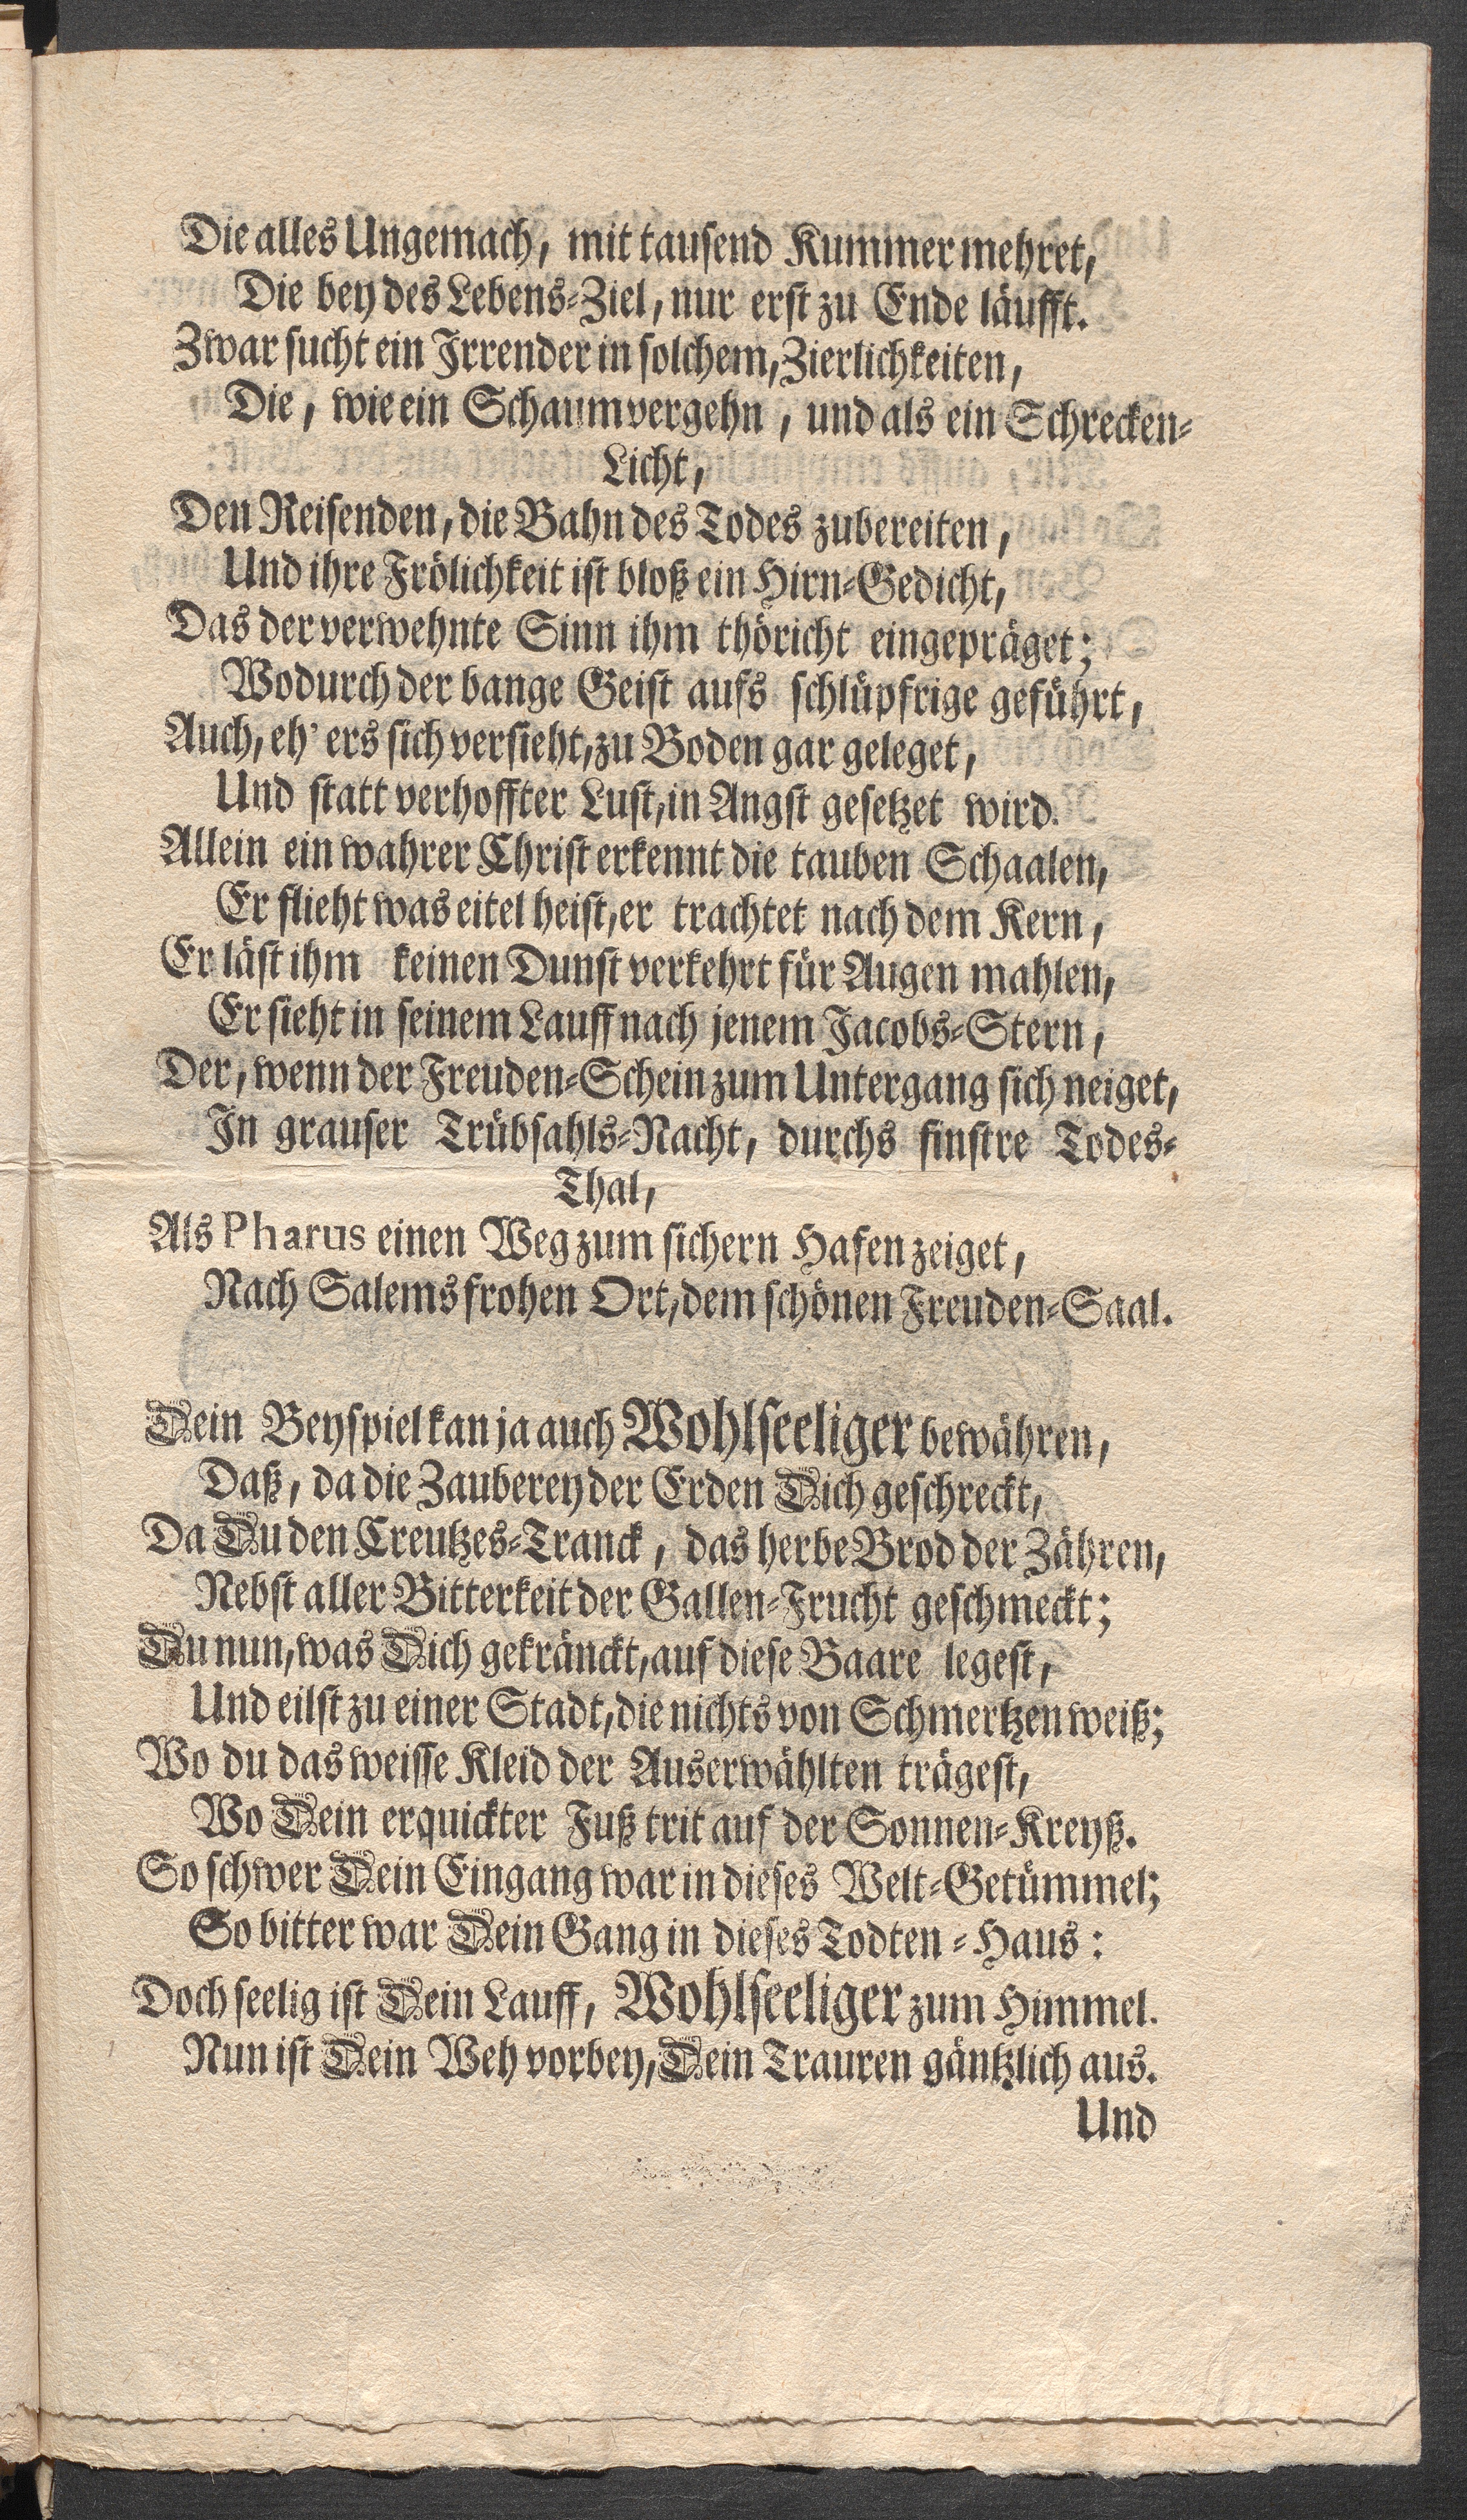 Die alles Ungemach, mit tausend Kummer mehret,
Die bey des Lebens-Ziel, nur erst zu Ende läufft.
Zwar sucht ein Irrender in solchem, Zierlichkeiten,
Die, wie ein Schaum vergehn, und als ein Schrecken-
Licht,
Den Reisenden, die Bahn des Todes zubereiten,
Und ihre Frölichkeit ist bloß ein Hirn-Gedicht,
Das der verwehnte Sinn ihm thöricht eingepräget;
Wodurch der bange Geist aufs schlüpfrige geführt,
Auch, eh' ers sich versieht, zu Boden gar geleget,
Und statt verhoffter Lust, in Angst gesetzet wird.
Allein ein wahrer Christ erkennt die tauben Schaalen,
Er flieht was eitel heist, er trachtet nach dem Kern,
Er läst ihm keinen Dunst verkehrt für Augen mahlen,
Er sieht in seinem Lauff nach jenem Jacobs-Stern,
Der, wenn der Freuden-Schein zum Untergang sich neiget,
In grauser Trübsahls-Nacht, durchs finstre Todes-
Thal,
Als Pharus einen Weg zum sichern Hafen zeiget,
Nach Salems frohen Ort, dem schönen Freuden-Saal.
Dein Beyspiel kan ja auch Wohlseeliger bewähren,
Daß, da die Zauberey der Erden Dich geschreckt,
Da Du den Creutzes-Tranck, das herbe Brod der Zähren,
Nebst aller Bitterkeit der Gallen-Frucht geschmeckt;
Du nun, was Dich gekränckt, auf diese Baare legest,
Und eilst zu einer Stadt, die nichts von Schmertzen weiß;
Wo du das weisse Kleid der Auserwählten trägest,
Wo Dein erquickter Fuß trit auf der Sonnen-Kreyß.
So schwer Dein Eingang war in dieses Welt-Getümmel;
So bitter war Dein Gang in dieses Todten-Haus:
Doch seelig ist Dein Lauff, Wohlseeliger zum Himmel.
Nun ist Dein Weh vorbey, Dein Trauren gäntzlich aus.
Und